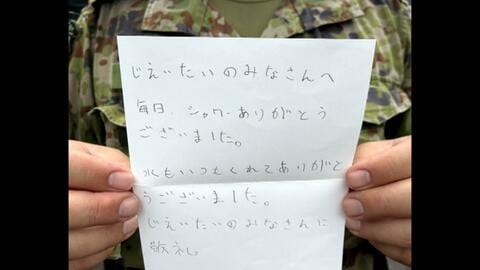 じえいたいのみなさんへ
毎日、シャワーありがとう
ございました。
水もいつもくれてありがと
うございました。
じえいたいのみなさんに
敬礼